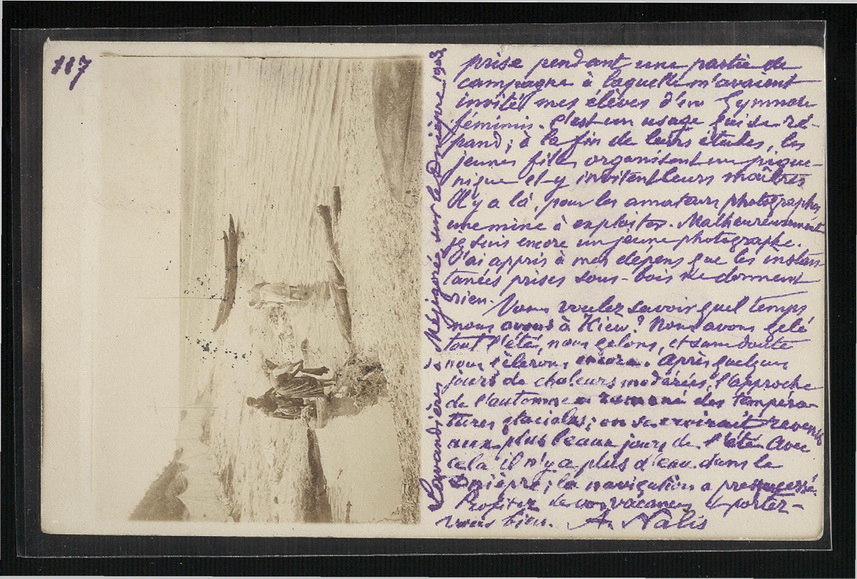 117
Lavandières à Méjigorié sur le Dnièpre 1903
prise pendant une partie de
campagne à laquelle m'avaient
invité mes élèves d'un Gymnase
féminin. C'est un usage qui se ré-
pand; à la fin de leurs études, les
jeunes filles organisent un pique-
nique et y invitent leurs maîtres
Il y a là, pour les amateurs photographes
une mine à exploiter. Malheureusement
je suis encore un jeune photographe.
J'ai appris à mes dépens que les instan-
tanées prises sous-bois ne donnent
rien.
Vous voulez savoir quel temps
nous avons à Kiew? Nous avons gelé
tout l'été, nous gelons, et sans doute
nous gèlerons encore. Après quelques
jours de chaleurs modérées, l'approche
de l'automne a ramené des tempéra-
tures glaciales; on se croirait revenu
aux plus beaux jours de l'été. Avec
cela il n'y a plus d'eau dans le
Dnièpre; la navigation a presque cessé.
Profitez de vos vacances & portez-
vous bien. A. Nalis